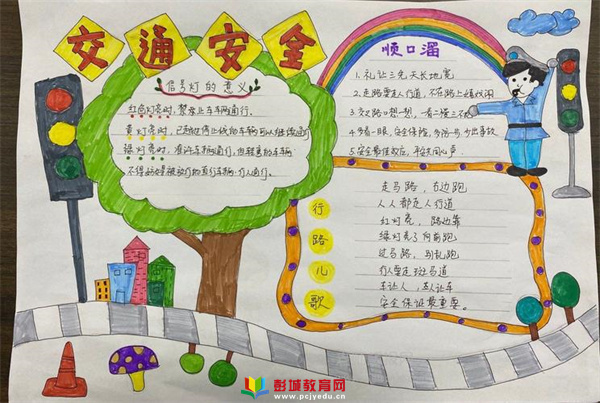 交通安全
信号灯的意义
红色灯亮时,禁止车辆通行,
黄灯亮时,已越过停止线的车辆可以继续通
绿灯亮时,准许车辆通行,但转弯的车辆
不得妨碍被放行的直行车辆,行人通行,
顺口溜
1.礼让三先天长地宽
2.走路要走人行道,不在路上嬉戏闹
3.交叉路口想一想,看二慢三不
4.多看一眼,安全保险,多防一步,少出事故
5.安全最佳效后,平安是同心声
行路儿歌
走马路,右边跑
人人都走人行道
红灯亮,路边靠
绿灯亮了向前跑
过马路,别乱跑
行人要走斑马道
车让人,人让车
安全保证最重要。
彭城教育网
www.pcjyedu.cn